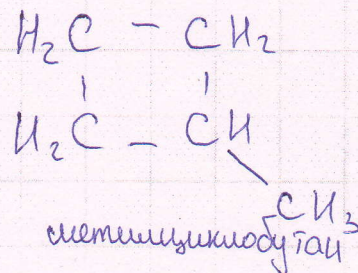 H₂C - CH₂
H₂C - CH
CH₃
метилциклобутан